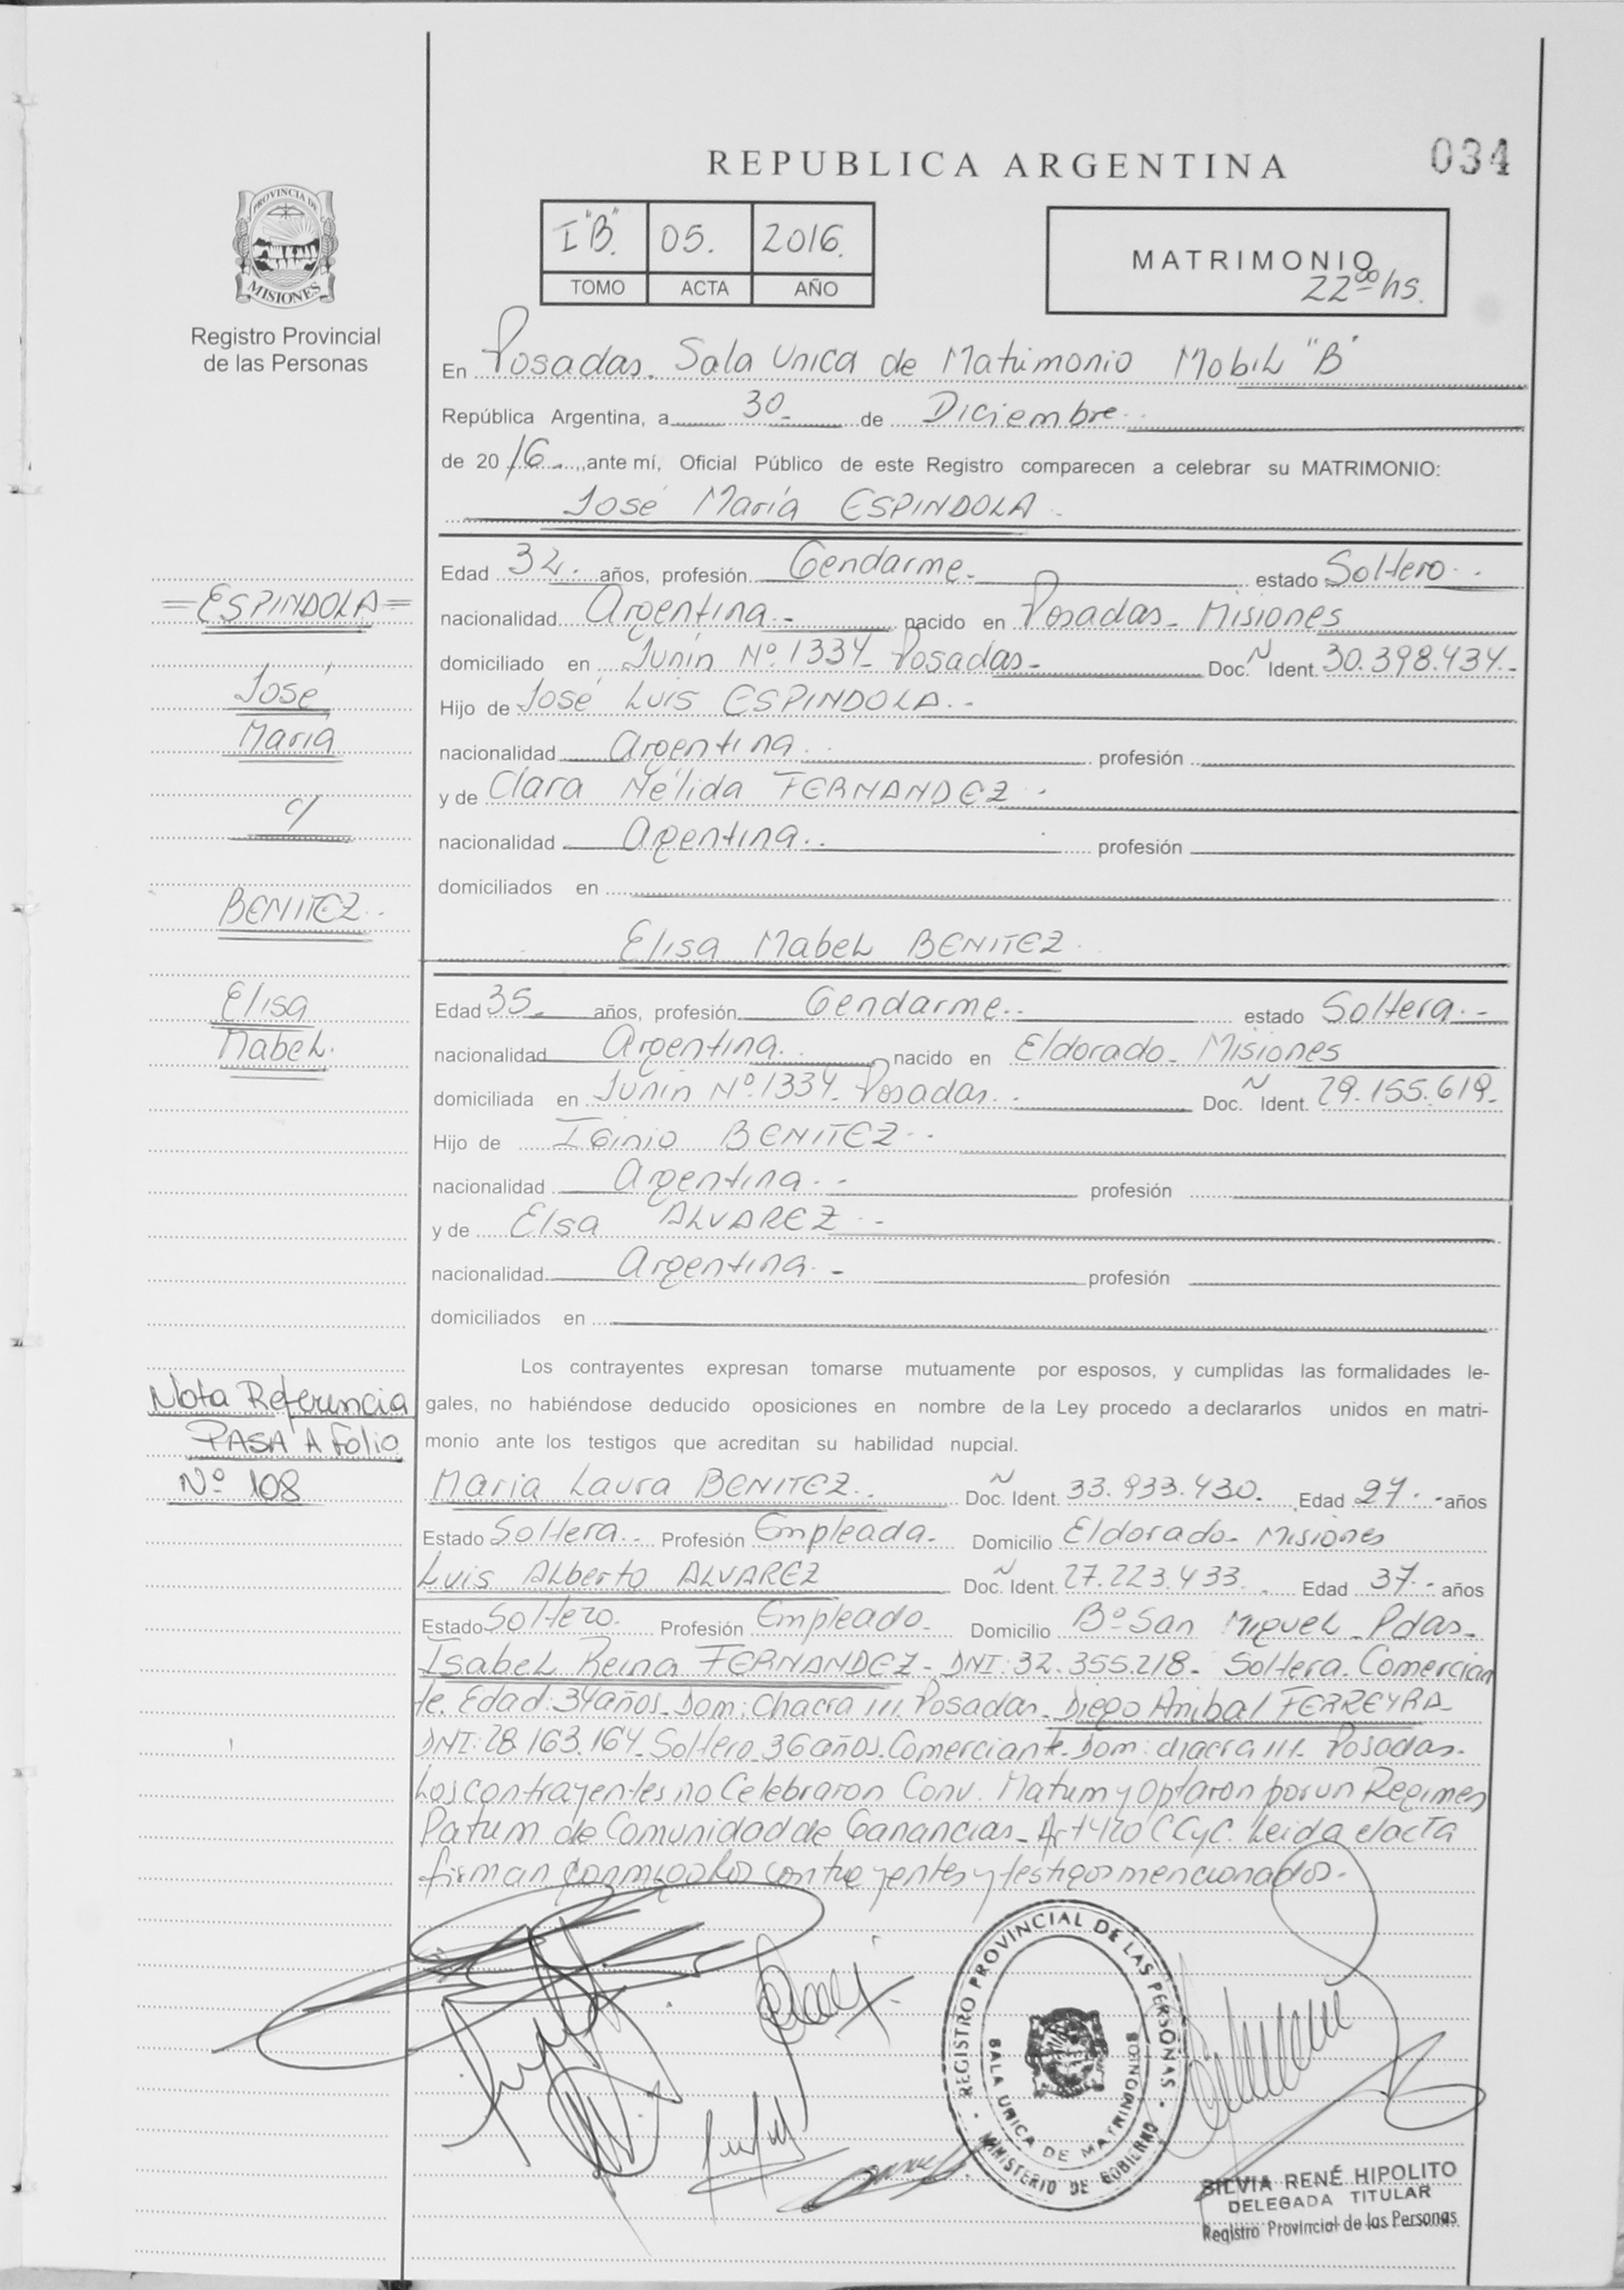 REPUBLICA ARGENTINA
034
PROVINCIA DE
MISIONES
Registro Provincial
de las Personas
I "B". 05. 2016.
TOMO ACTA AÑO
MATRIMONIO
22⁰⁰ hs.
En Posadas. Sala Unica de Matrimonio MobiL "B"
República Argentina, a 30 de Diciembre
de 2016, ante mí, Oficial Público de este Registro comparecen a celebrar su MATRIMONIO:
José María ESPINDOLA
Edad 32. años, profesión Gendarme. estado Soltero
nacionalidad Argentina nacido en Posadas - Misiones
domiciliado en Junin Nº. 1334 - Posadas - Doc. N Ident. 30.398.434.
Hijo de José Luis ESPINDOLA.
nacionalidad Argentina. profesión
y de Clara Nélida FERNANDEZ
nacionalidad Argentina. profesión
domiciliados en
Elisa MabeL BENITEZ
Edad 35 años, profesión Gendarme. estado Soltera.
nacionalidad Argentina. nacido en Eldorado - Misiones
domiciliada en Junin Nº. 1334 - Posadas. Doc. N Ident. 29.155.619.
Hijo de IGinio BENITEZ
nacionalidad Argentina. profesión
y de Elsa ALVAREZ
nacionalidad Argentina. profesión
domiciliados en
Los contrayentes expresan tomarse mutuamente por esposos, y cumplidas las formalidades le-
gales, no habiéndose deducido oposiciones en nombre de la Ley procedo a declararlos unidos en matri-
monio ante los testigos que acreditan su habilidad nupcial.
Maria Laura BENITEZ. Doc. N Ident. 33.933.430. Edad 27. años
Estado Soltera. Profesión Empleada. Domicilio Eldorado - Misiones
Luis ALberto ALVAREZ Doc. N Ident. 27.223.433. Edad 37. años
Estado Soltero. Profesión Empleado. Domicilio Bº San MigueL - Pdas.
IsabeL Reina FERNANDEZ - DNI: 32.355.218 - Soltera. Comercian
te. Edad: 34 años. Dom: Chacra 111. Posadas. Diego Anibal FERREYRA
DNI: 28.163.164. Soltero. 36 años. Comerciante. Dom: chacra 111. Posadas.
Los contrayentes no Celebraron Conv. Matrim y Optaron por un Regimen
Patrim de Comunidad de Ganancias. Art 420 CCyC. Leida el acta
firman conmigo los contrayentes y testigos mencionados.
=ESPINDOLA=
José
María
c/
BENITEZ
Elisa
MabeL.
Nota Referencia
PASA A folio
Nº 108
REGISTRO PROVINCIAL DE LAS PERSONAS
SALA UNICA DE MATRIMONIOS
MINISTERIO DE GOBIERNO
SILVIA RENÉ HIPOLITO
DELEGADA TITULAR
Registro Provincial de las Personas